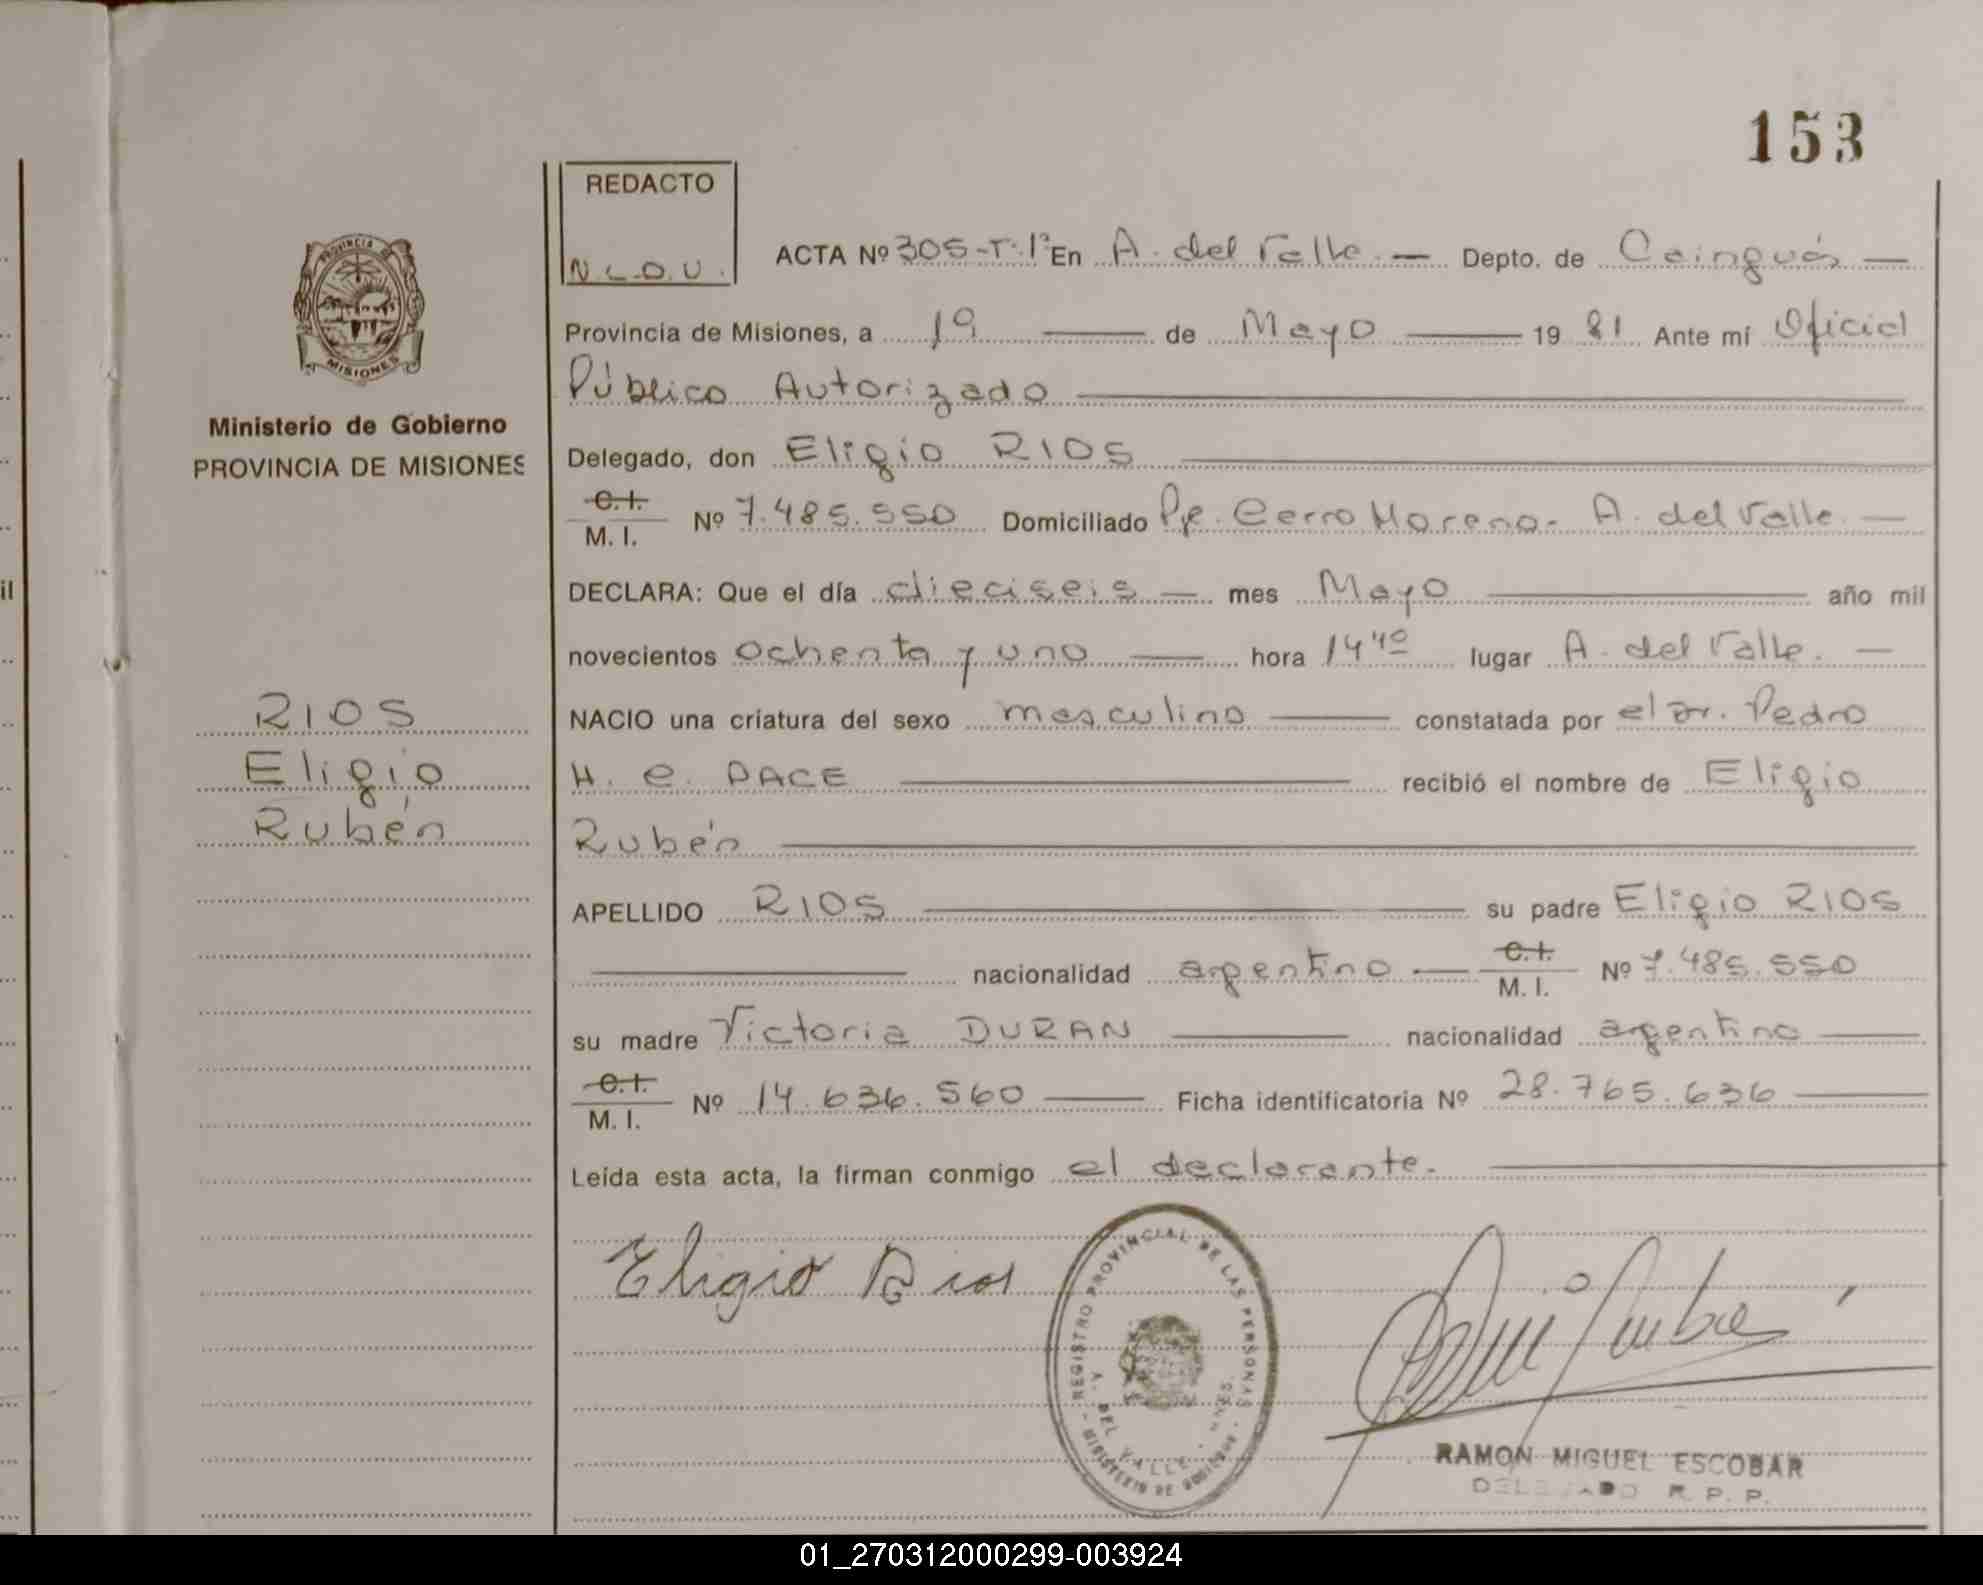 153
REDACTO
N.L.D.U.
ACTA Nº 305-T.1º En A. del Valle. — Depto. de Cainguás —
Provincia de Misiones, a 19 — de Mayo — 19 81 Ante mí Oficial
Público Autorizado
PROVINCIA
MISIONES
Ministerio de Gobierno
PROVINCIA DE MISIONES
Delegado, don Eligio RIOS
C.I.
M. I. Nº 7.485.550 Domiciliado Pje. Cerro Moreno- A. del Valle —
DECLARA: Que el día dieciseis — mes Mayo — año mil
novecientos ochenta y uno — hora 14 40 lugar A. del Valle. —
RIOS
Eligio
Rubén
NACIO una criatura del sexo masculino — constatada por el Dr. Pedro
H. C. PACE — recibió el nombre de Eligio
Rubén
APELLIDO RIOS — su padre Eligio RIOS
— nacionalidad argentino — C.I.
M. I. Nº 7.485.550
su madre Victoria DURAN — nacionalidad argentina —
C.I.
M. I. Nº 14.636.560 — Ficha identificatoria Nº 28.765.636 —
Leída esta acta, la firman conmigo el declarante. —
Eligio Rios
REGISTRO PROVINCIAL DE LAS PERSONAS
A. DEL VALLE - MNES.
MINISTERIO DE GOBIERNO
RAMON MIGUEL ESCOBAR
DELEGADO R. P. P.
il
01_270312000299-003924